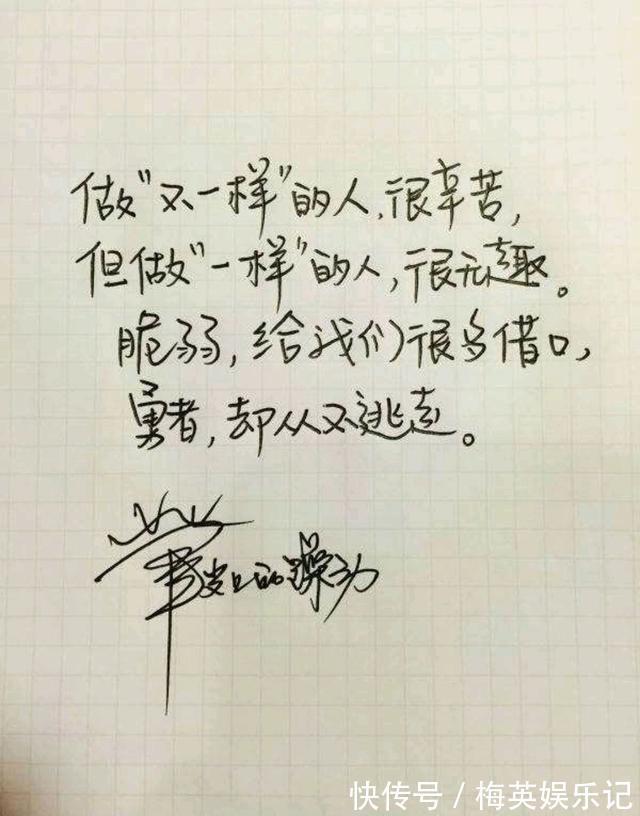 做"不一样"的人,很辛苦,
但做"一样"的人,很无趣。
脆弱,给我们很多借口,
勇者,却从不逃走。
快传号/梅英娱乐记